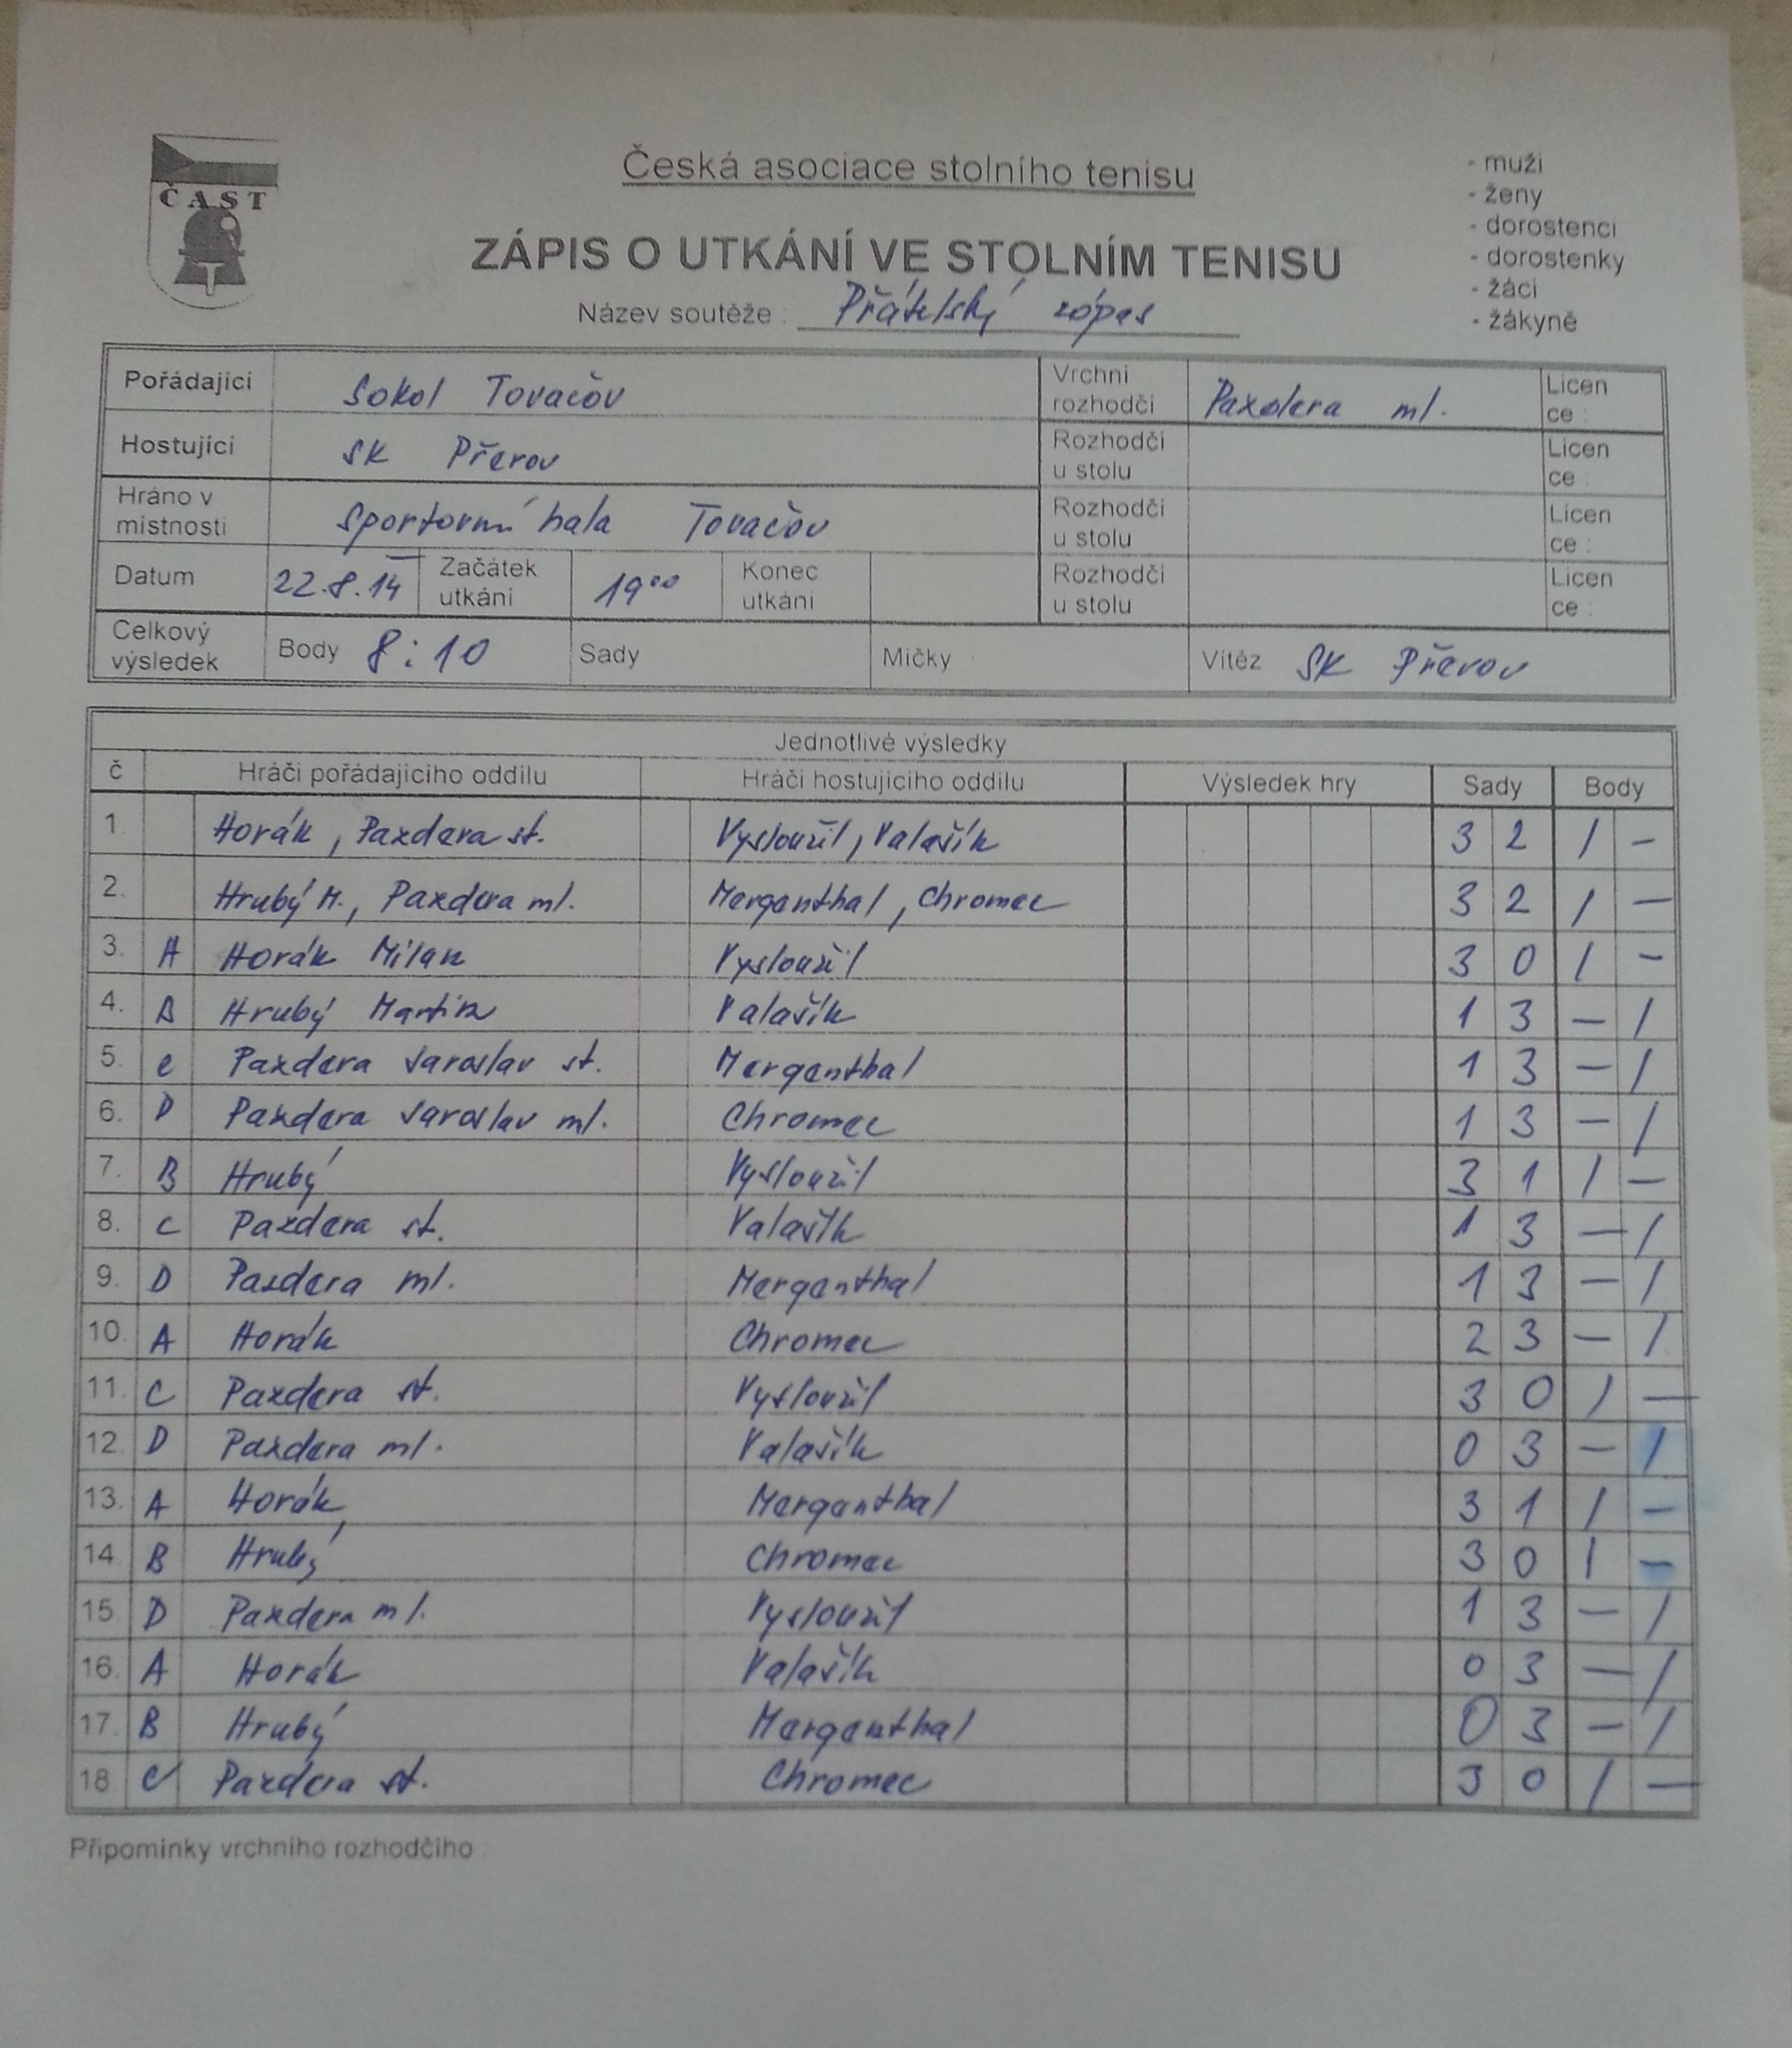 ČAST
Česká asociace stolního tenisu
ZÁPIS O UTKÁNÍ VE STOLNÍM TENISU
Název soutěže : Přátelský zápas
- muži
- ženy
- dorostenci
- dorostenky
- žáci
- žákyně
Pořádající Sokol Tovačov Vrchní rozhodčí Pazdera ml. Licence :
Hostující SK Přerov Rozhodčí u stolu Licence :
Hráno v místnosti Sportovní hala Tovačov Rozhodčí u stolu Licence :
Datum 22.8.14 Začátek utkání 19⁰⁰ Konec utkání Rozhodčí u stolu Licence :
Celkový výsledek Body 8:10 Sady Míčky Vítěz SK Přerov
Jednotlivé výsledky
č Hráči pořádajícího oddílu Hráči hostujícího oddílu Výsledek hry Sady Body
1. Horák, Pazdera st. Vysloužil, Valašík 3 2 1 -
2. Hrubý M., Pazdera ml. Merganthal, Chromec 3 2 1 -
3. A Horák Milan Vysloužil 3 0 1 -
4. B Hrubý Martin Valašík 1 3 - 1
5. C Pazdera Jaroslav st. Merganthal 1 3 - 1
6. D Pazdera Jaroslav ml. Chromec 1 3 - 1
7. B Hrubý Vysloužil 3 1 1 -
8. C Pazdera st. Valašík 1 3 - 1
9. D Pazdera ml. Merganthal 1 3 - 1
10. A Horák Chromec 2 3 - 1
11. C Pazdera st. Vysloužil 3 0 1 -
12. D Pazdera ml. Valašík 0 3 - 1
13. A Horák Merganthal 3 1 1 -
14. B Hrubý Chromec 3 0 1 -
15 D Pazdera ml. Vysloužil 1 3 - 1
16. A Horák Valašík 0 3 - 1
17. B Hrubý Merganthal 0 3 - 1
18 C Pazdera st. Chromec 3 0 1 -
Připomínky vrchního rozhodčího